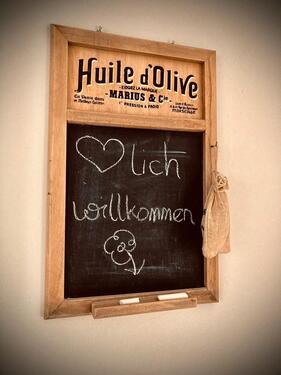 Huile d'Olive
EXIGEZ LA MARQUE
MARIUS & Cie
1re PRESSION À FROID
♡lich
willkommen